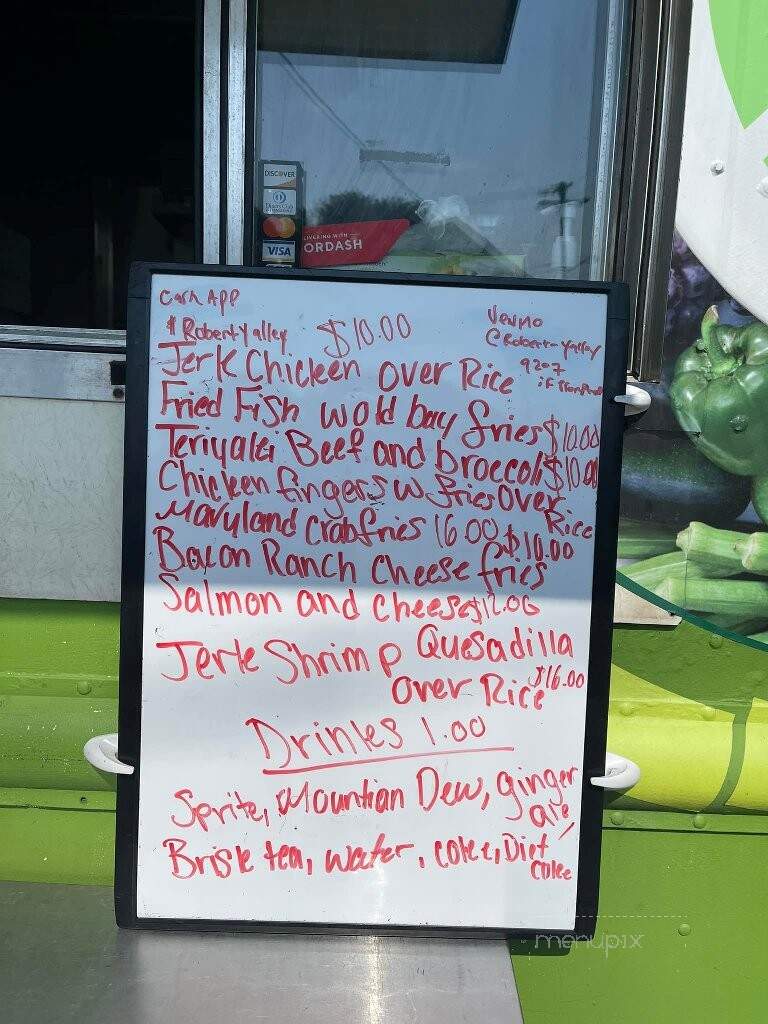 DISCOVER
Diners Club
VISA
DELIVERING WITH
ORDASH
Cash App
$RobertYalley $10.00
Venmo
@Robert-Yalley
9207
Jerk Chicken over Rice
if
Fried Fish w old bay fries $10.00
Teriyaki Beef and broccoli $10.00
Chicken fingers w fries Over Rice
Maryland Crab fries 16.00 $10.00
Bacon Ranch Cheese fries
Salmon and Cheese $12.00
Quesadilla
Jerk Shrimp
$16.00
over Rice
Drinks 1.00
Sprite, Mountian Dew, ginger
ale,
Brisk tea, water, coke, Diet
Coke
menupix